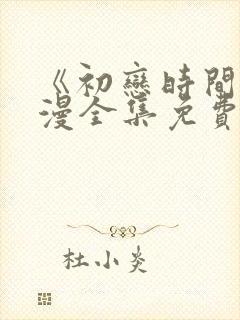 《初戀時間
漫全集免費
杜小炎